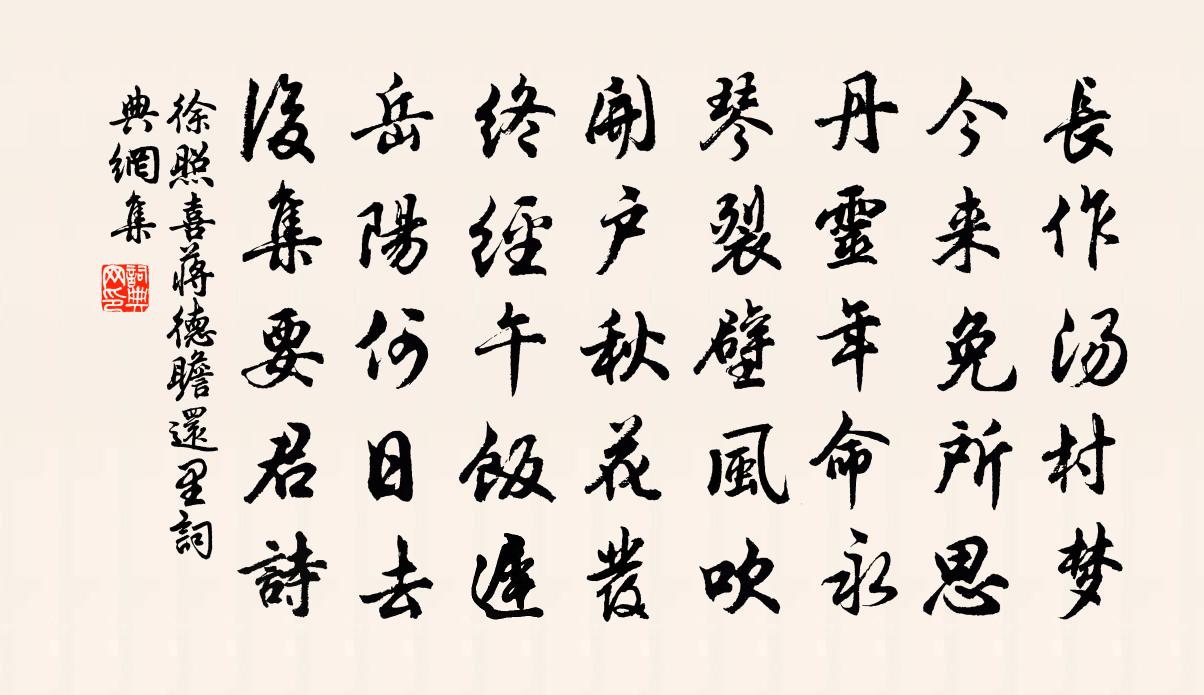 長作汤村梦
今来免所思
丹靈年命永
琴裂壁風吹
開户秋花發
終經午飯遲
岳陽何日去
後集要君詩
徐照喜蒋德瞻還里詞
典網集
詞典
网印